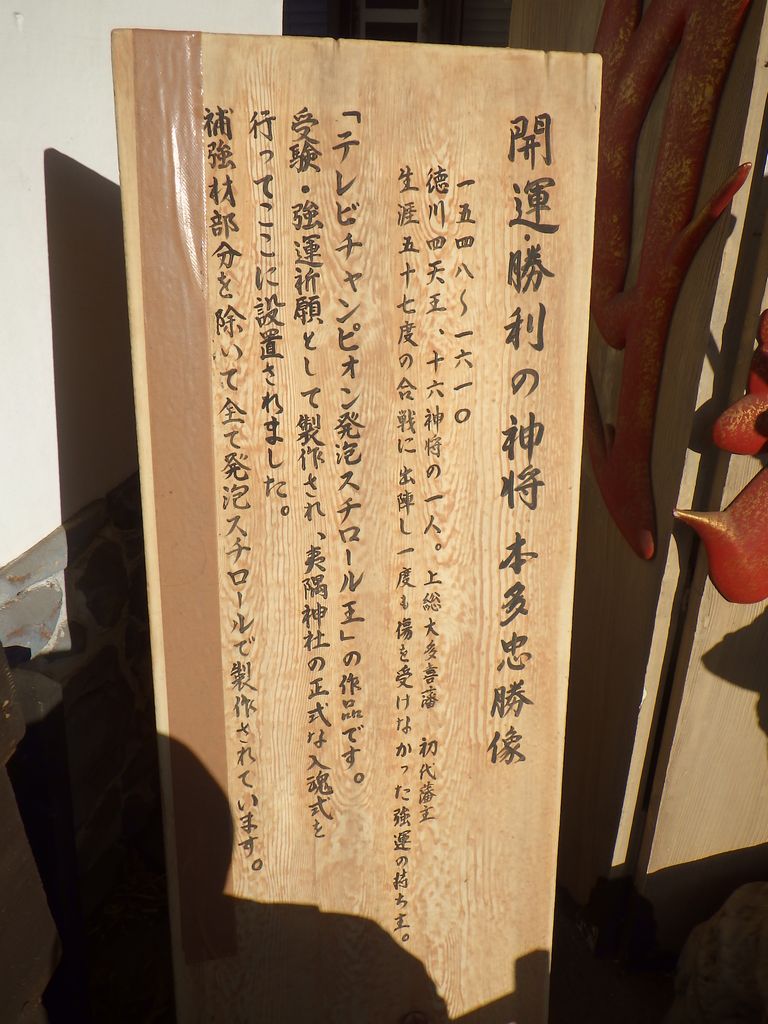 開運・勝利の神将 本多忠勝像
一五四八〜一六一〇
徳川四天王、十六神将の一人。上総大多喜藩 初代藩主
生涯五十七度の合戦に出陣し一度も傷を受けなかった強運の持ち主。
「テレビチャンピオン発泡スチロール王」の作品です。
受験・強運祈願として製作され、夷隅神社の正式な入魂式を
行ってここに設置されました。
補強材部分を除いて全て発泡スチロールで製作されています。